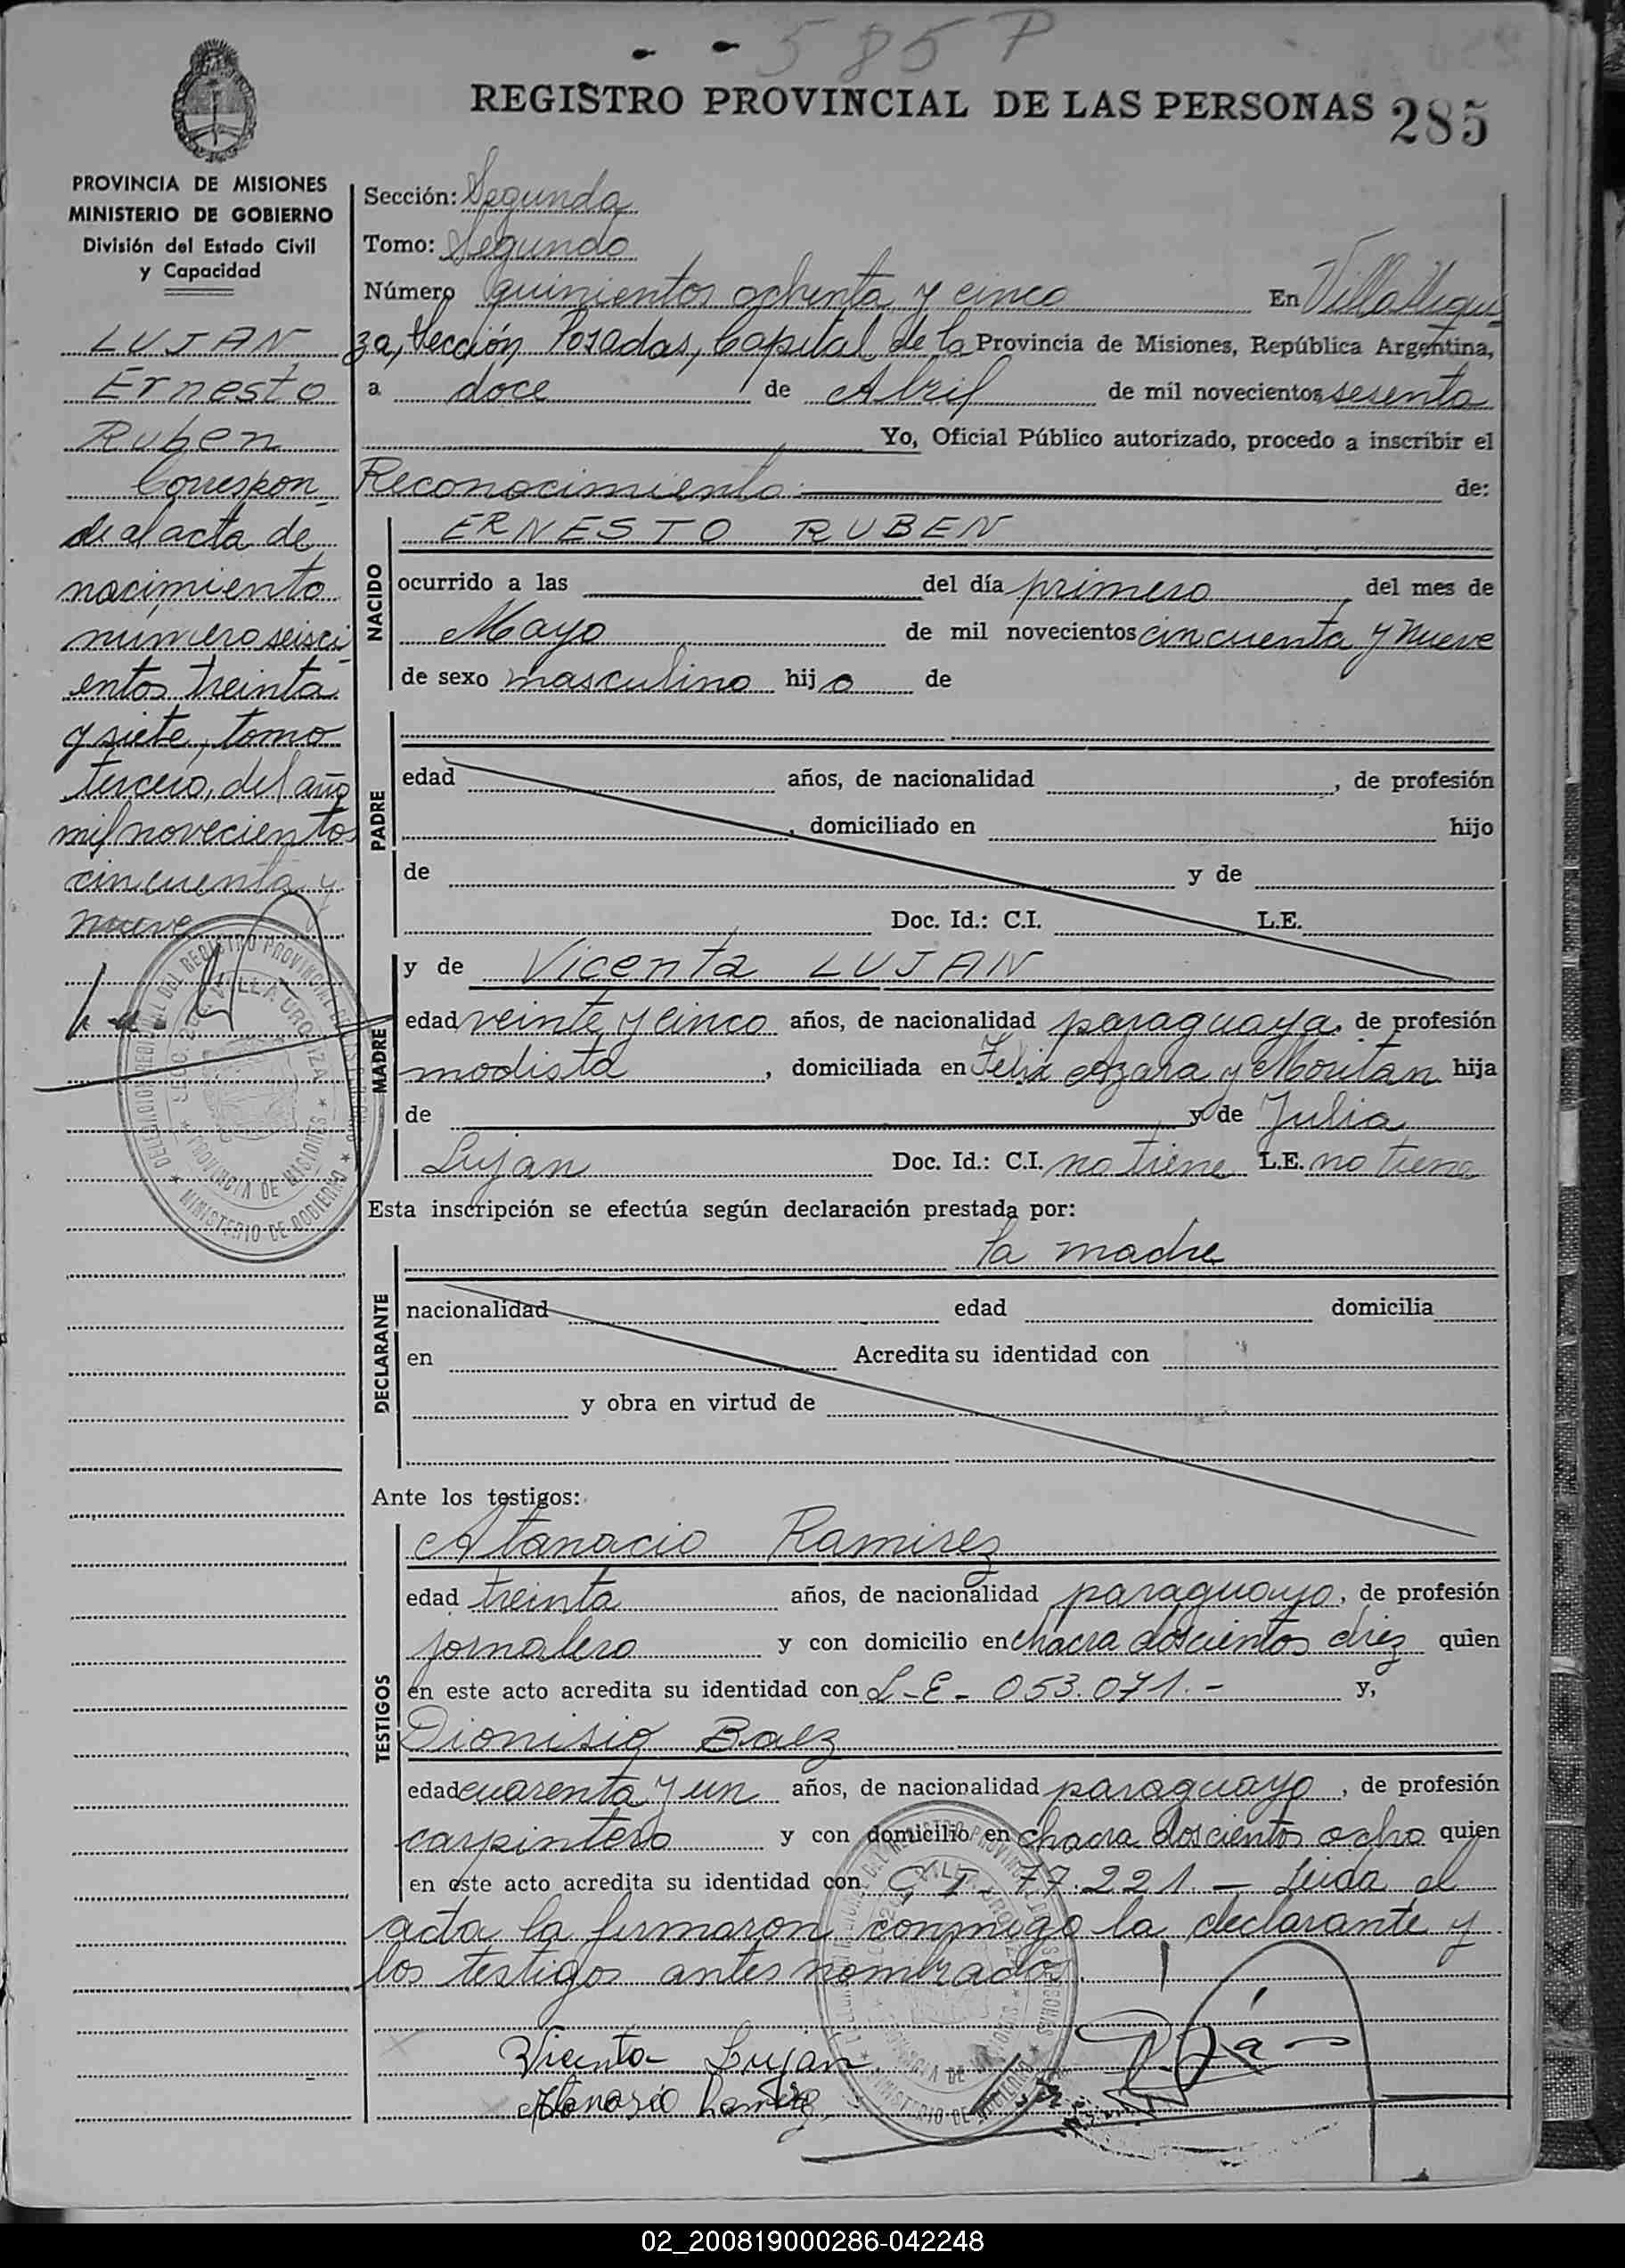 585 P
REGISTRO PROVINCIAL DE LAS PERSONAS 285
PROVINCIA DE MISIONES
MINISTERIO DE GOBIERNO
División del Estado Civil
y Capacidad
LUJAN
Ernesto
Ruben
Correspon
de al acta de
nacimiento
número seisci
entos treinta
y siete, tomo
tercero, del año
mil novecientos
cincuenta y
nueve
Sección: Segunda
Tomo: Segundo
Número quinientos ochenta y cinco En Villa Urqui
za, Sección Posadas, Capital de la Provincia de Misiones, República Argentina,
a doce de Abril de mil novecientos sesenta
Yo, Oficial Público autorizado, procedo a inscribir el
Reconocimiento de:
NACIDO
ERNESTO RUBEN
ocurrido a las del día primero del mes de
Mayo de mil novecientos cincuenta y nueve
de sexo masculino hijo de
PADRE
edad años, de nacionalidad , de profesión
, domiciliado en hijo
de y de
Doc. Id.: C.I. L.E.
MADRE
y de Vicenta LUJAN
edad veinte y cinco años, de nacionalidad paraguaya, de profesión
modista , domiciliada en Felix Azara y Moritan hija
de y de Julia
Lujan Doc. Id.: C.I. no tiene L.E. no tiene
Esta inscripción se efectúa según declaración prestada por:
la madre
DECLARANTE
nacionalidad edad domicilia
en Acredita su identidad con
y obra en virtud de
Ante los testigos:
TESTIGOS
Atanacio Ramirez
edad treinta años, de nacionalidad paraguayo, de profesión
jornalero y con domicilio en chacra doscientos diez quien
en este acto acredita su identidad con L-E- 053.071.- y,
Dionisio Baez
edad cuarenta y un años, de nacionalidad paraguayo, de profesión
carpintero y con domicilio en chacra doscientos ocho quien
en este acto acredita su identidad con C I. 77.221.- Leida el
acta la firmaron conmigo la declarante y
los testigos antes nombrados.
Vicenta Lujan
Atanasio Ramirez
02_200819000286-042248